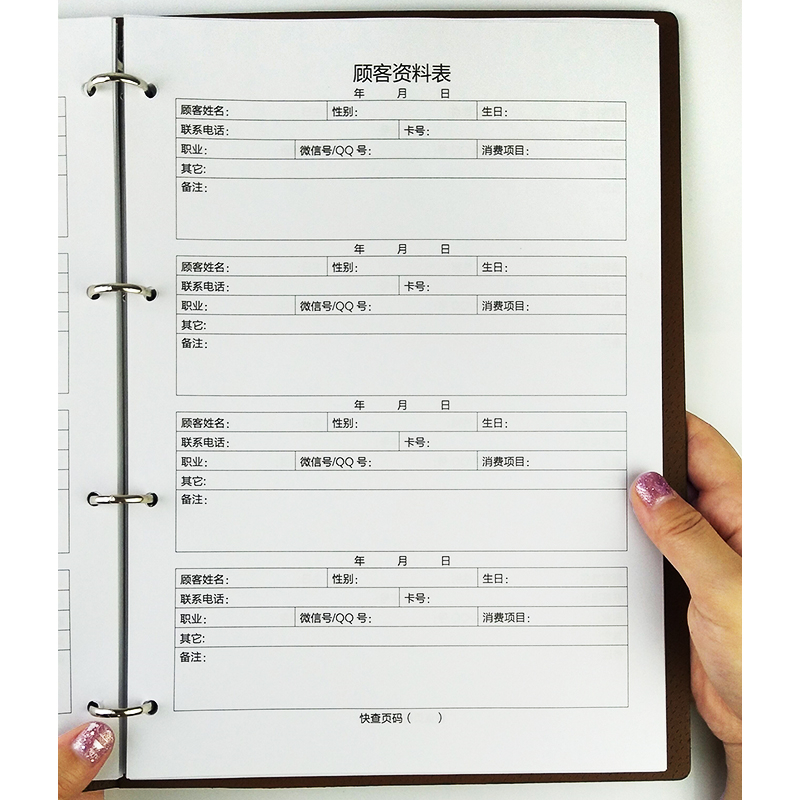 顾客资料表
年 月 日
顾客姓名： 性别： 生日：
联系电话： 卡号：
职业： 微信号/QQ 号： 消费项目：
其它：
备注：
年 月 日
顾客姓名： 性别： 生日：
联系电话： 卡号：
职业： 微信号/QQ 号： 消费项目：
其它：
备注：
年 月 日
顾客姓名： 性别： 生日：
联系电话： 卡号：
职业： 微信号/QQ 号： 消费项目：
其它：
备注：
年 月 日
顾客姓名： 性别： 生日：
联系电话： 卡号：
职业： 微信号/QQ 号： 消费项目：
其它：
备注：
快查页码（ ）